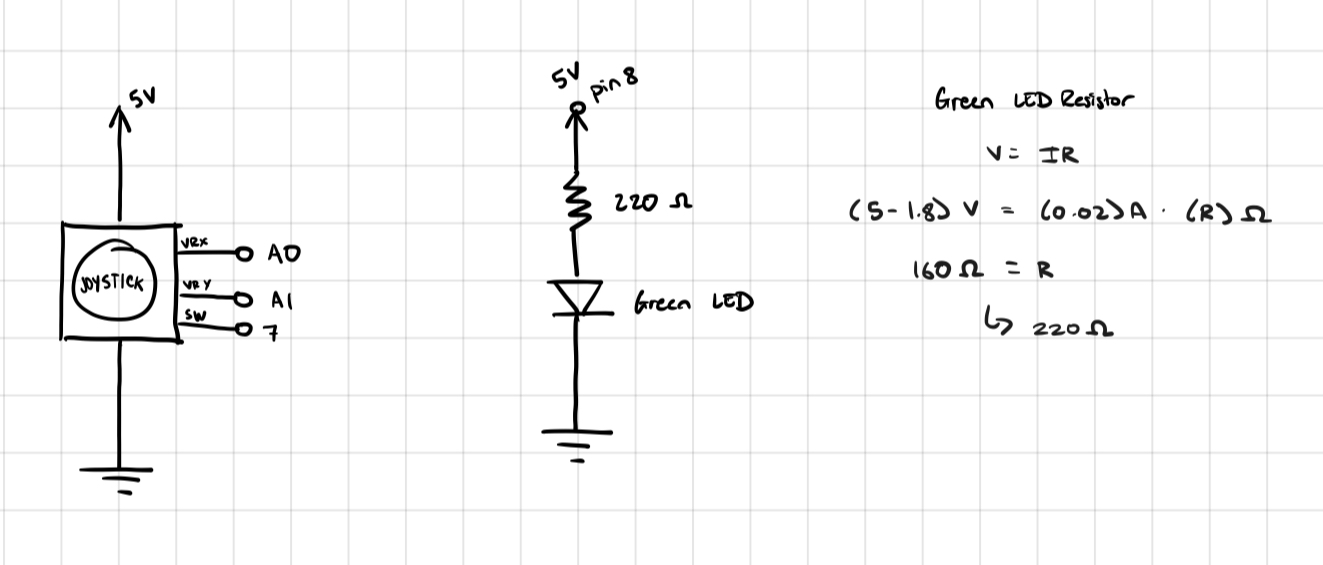 5V
JOYSTICK
VRX
A0
VRY
A1
SW
7
5V pin 8
220 Ω
Green LED
Green LED Resistor
V = IR
(5-1.8) V = (0.02) A · (R) Ω
160 Ω = R
↳ 220 Ω